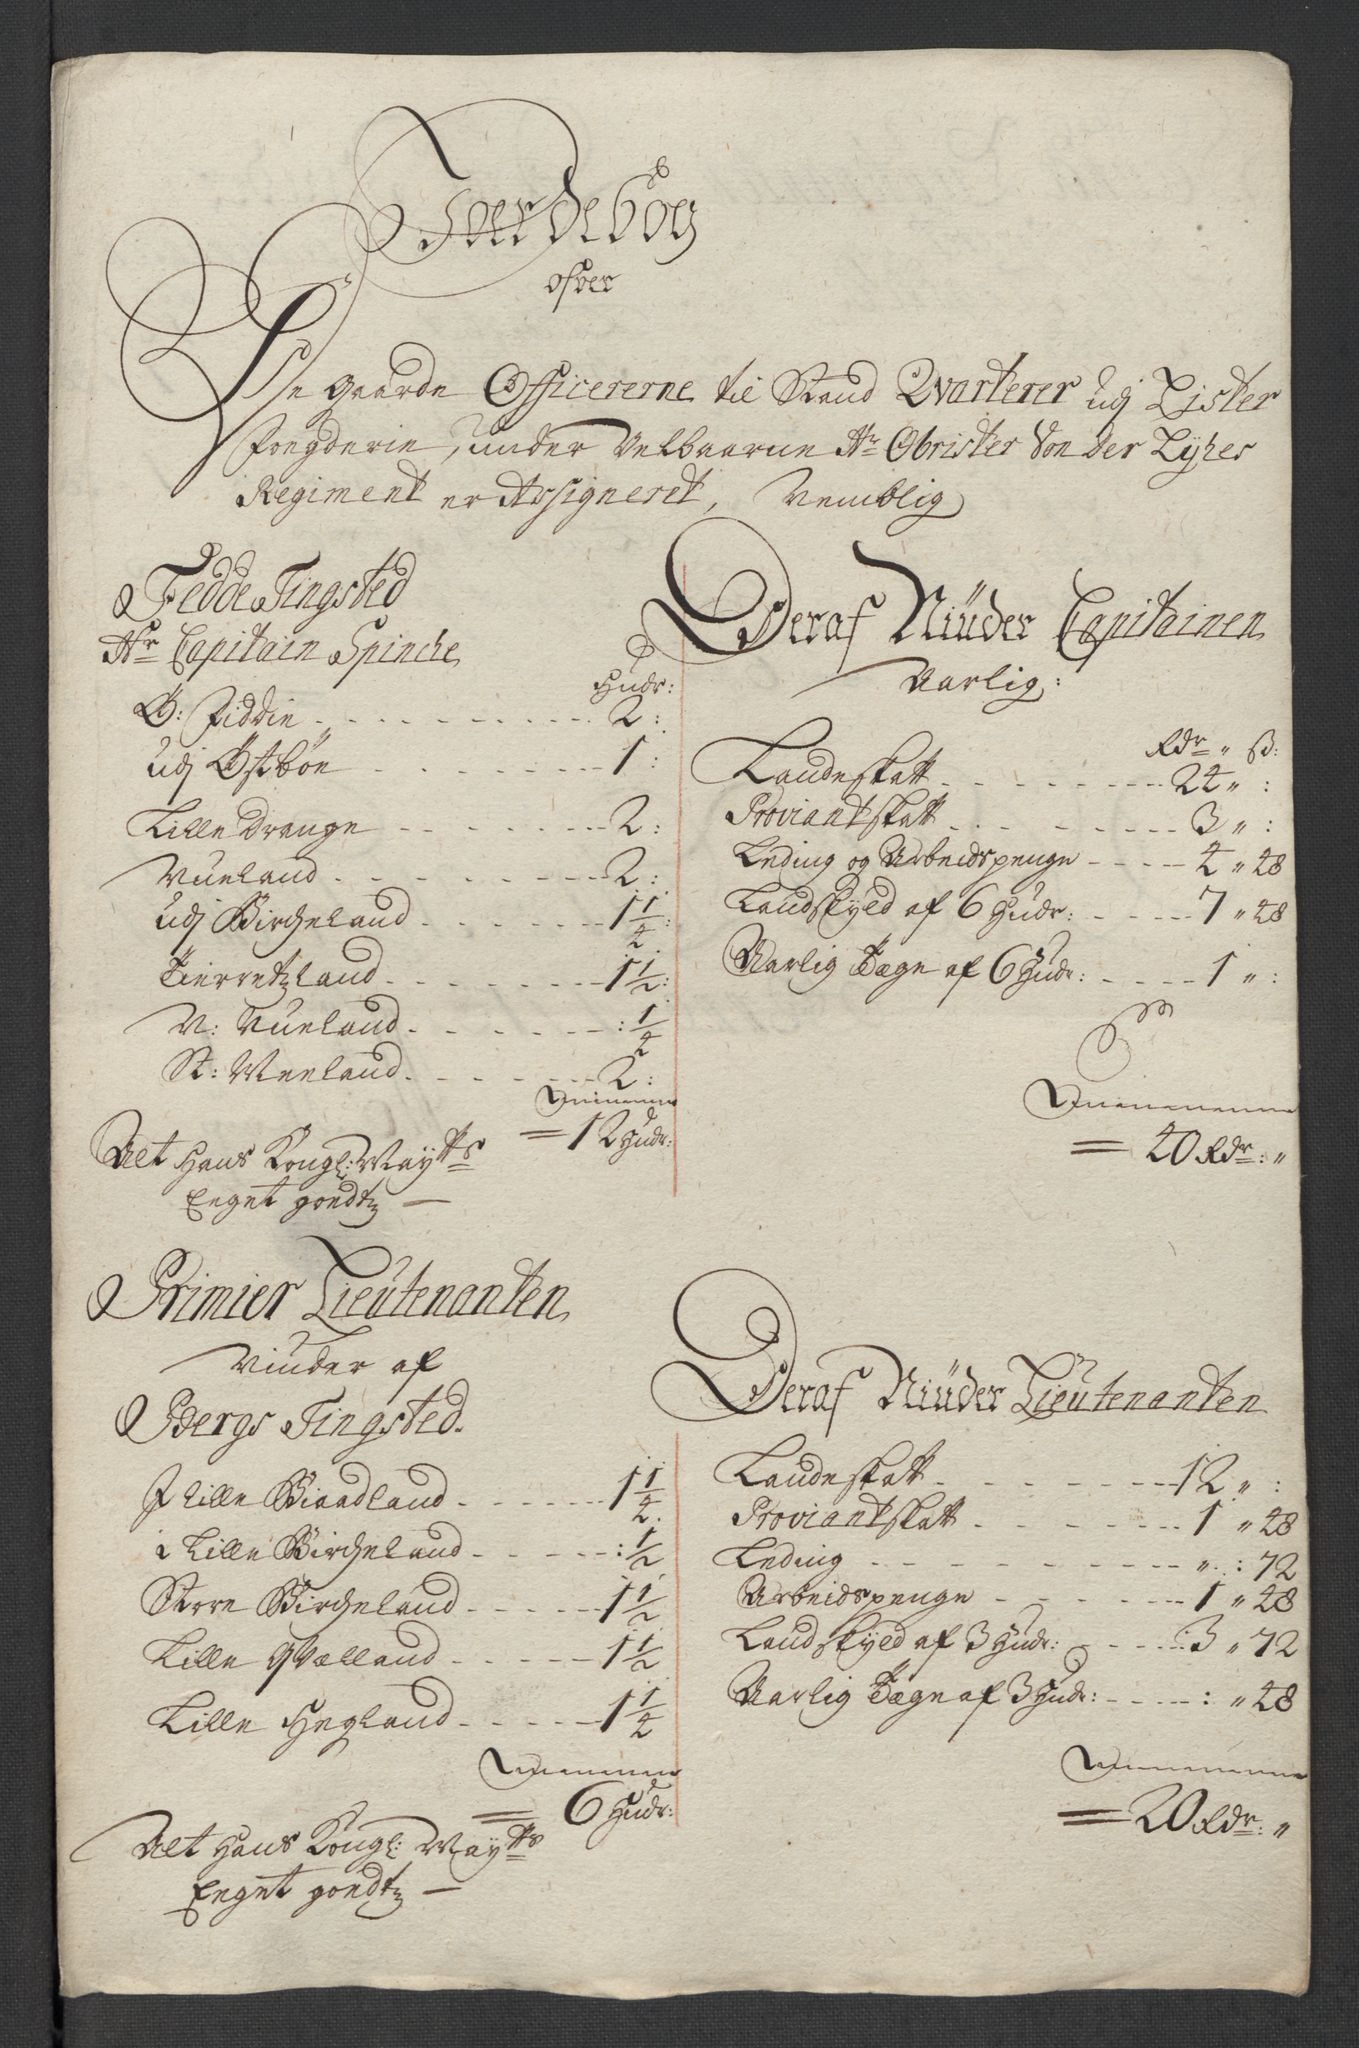 Jordebog
ofver
De Gaarde Officererne til Stand Qvarterer udj Lister
Fougderie, under Velbaarne Hr Obrister Von der Lyhes
Regiment er Assigneret, Nemblig
Fedde Tingsted
Hr Capitain Spinche
Hudr:
Ø: Fiddie 2:
udj Østbøe 1:
Lille Drange 2:
Vueland 2:
udj Bircheland 1 1/4:
Tierretzland 1 1/2:
N: Vueland : 1/4
St: Weeland 2:
Summa
= 12 Hudr:
Alt Hans Kongl: Maytts
Eeget goedtz —
Deraf Niüder Capitainen
Aarlig:
Rdr „ ß:
Landeskatt 24 „ :
Proviantskatt 3 „ :
Leding og Arbeidspenge 4 „ 48
Landskyld af 6 Hudr: 7 „ 48
Aarlig Tægn af 6 Hudr: 1 „ :
Summa
= 40 Rdr: „
Primier Lieutenanten
Niuder af
Bergs Tingsted.
J Lille Biaadland 1 1/4.
i Lille Bircheland : 1/2
Store Bircheland 1 1/2
Lille Qvælland 1 1/2
Lille Hegland 1 1/4
Summa
= 6 Hudr:
Alt Hans Kongl: Maytts
Eeget goedtz —
Deraf Niüder Lieutenanten
Landeskatt 12 „ :
Proviantskatt 1 „ 48
Leding „ : 72
Arbeidspenge 1 „ 48
Landskyld af 3 Hudr: 3 „ 72
Aarlig Tægn af 3 Hudr: : „ 48
Summa
= 20 Rdr: „